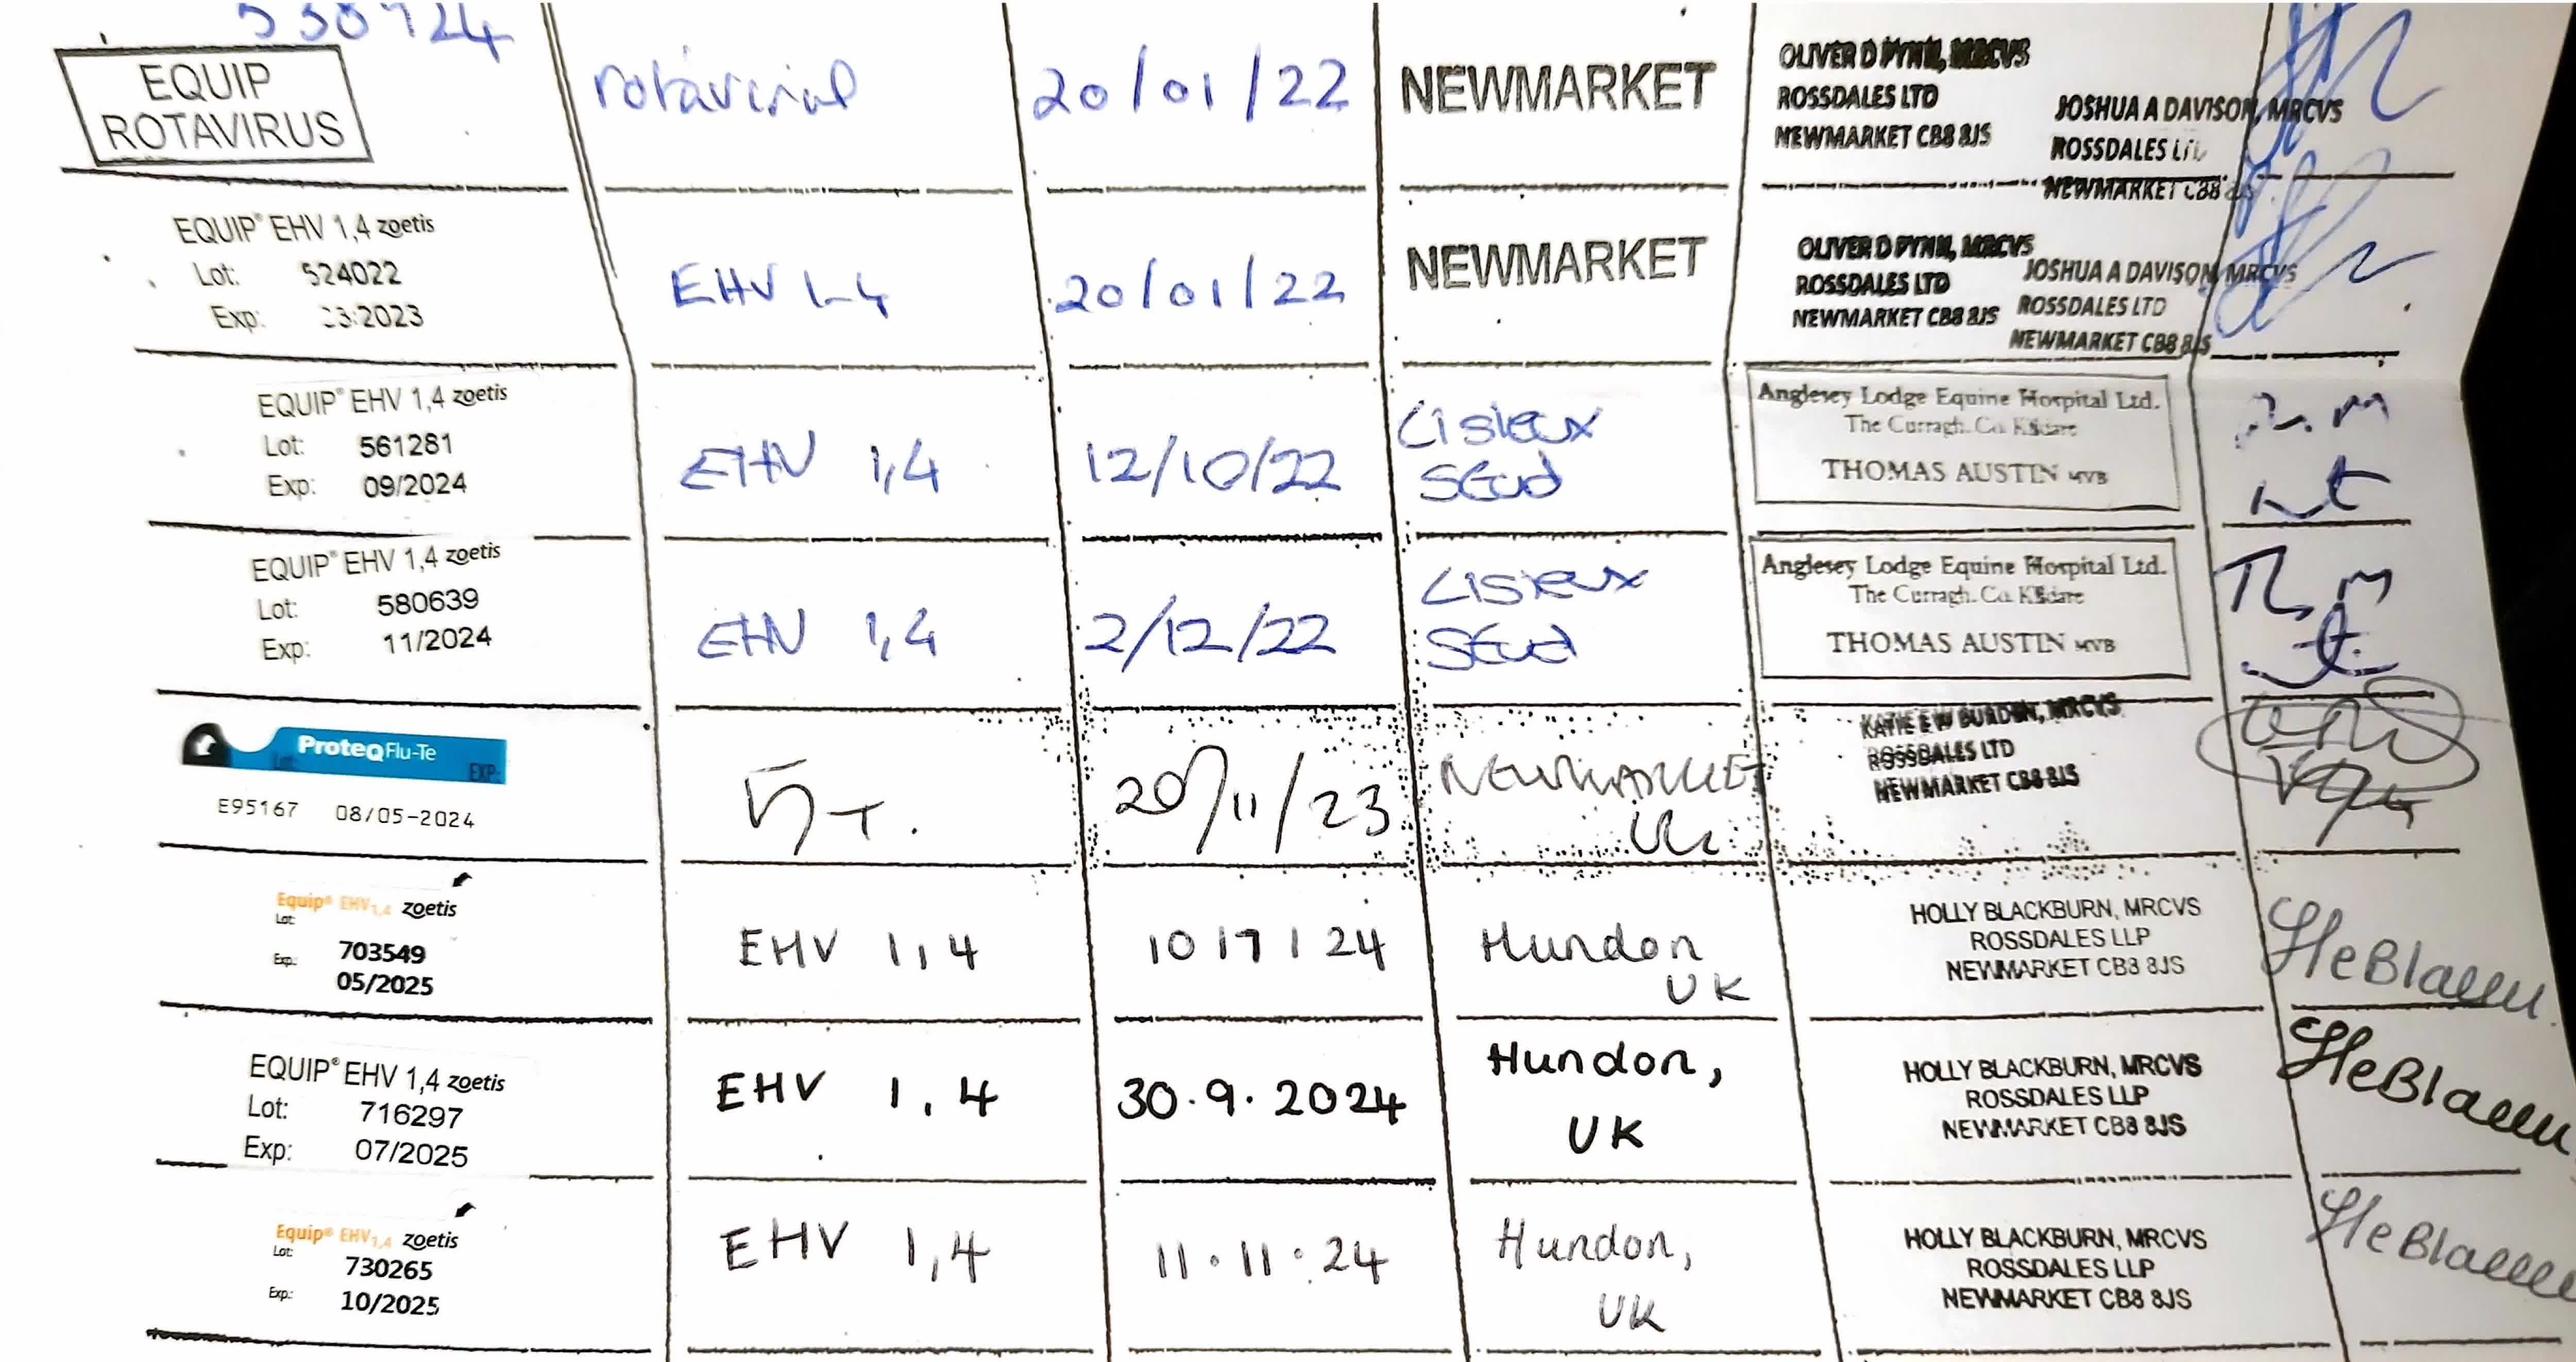 EQUIP
ROTAVIRUS
rotavirus
20/01/22
NEWMARKET
OLIVER D PYNN, MRCVS
ROSSDALES LTD
NEWMARKET CB8 8JS
JOSHUA A DAVISON, MRCVS
ROSSDALES LTD
NEWMARKET CB8 8JS
EQUIP® EHV 1,4 zoetis
Lot: 524022
Exp: 03:2023
EHV 1-4
20/01/22
NEWMARKET
OLIVER D PYNN, MRCVS
ROSSDALES LTD
NEWMARKET CB8 8JS
JOSHUA A DAVISON, MRCVS
ROSSDALES LTD
NEWMARKET CB8 8JS
EQUIP® EHV 1,4 zoetis
Lot: 561281
Exp: 09/2024
EHV 1,4
12/10/22
Lisieux
Stud
Anglesey Lodge Equine Hospital Ltd.
The Curragh. Co. Kildare
THOMAS AUSTIN MVB
EQUIP® EHV 1,4 zoetis
Lot: 580639
Exp: 11/2024
EHV 1,4
2/12/22
Lisieux
Stud
Anglesey Lodge Equine Hospital Ltd.
The Curragh. Co. Kildare
THOMAS AUSTIN MVB
ProteqFlu-Te
Lot: EXP:
E95167 08/05-2024
20/11/23
NEWMARKET
UK
KATIE E W BURDON, MRCVS
ROSSDALES LTD
NEWMARKET CB8 8JS
Equip® EHV1,4 zoetis
Lot:
703549
Exp:
05/2025
EHV 1,4
10/7/24
Hundon
UK
HOLLY BLACKBURN, MRCVS
ROSSDALES LLP
NEWMARKET CB8 8JS
EQUIP® EHV 1,4 zoetis
Lot: 716297
Exp: 07/2025
EHV 1,4
30.9.2024
Hundon,
UK
HOLLY BLACKBURN, MRCVS
ROSSDALES LLP
NEWMARKET CB8 8JS
Equip® EHV1,4 zoetis
Lot:
730265
Exp:
10/2025
EHV 1,4
11.11.24
Hundon,
UK
HOLLY BLACKBURN, MRCVS
ROSSDALES LLP
NEWMARKET CB8 8JS